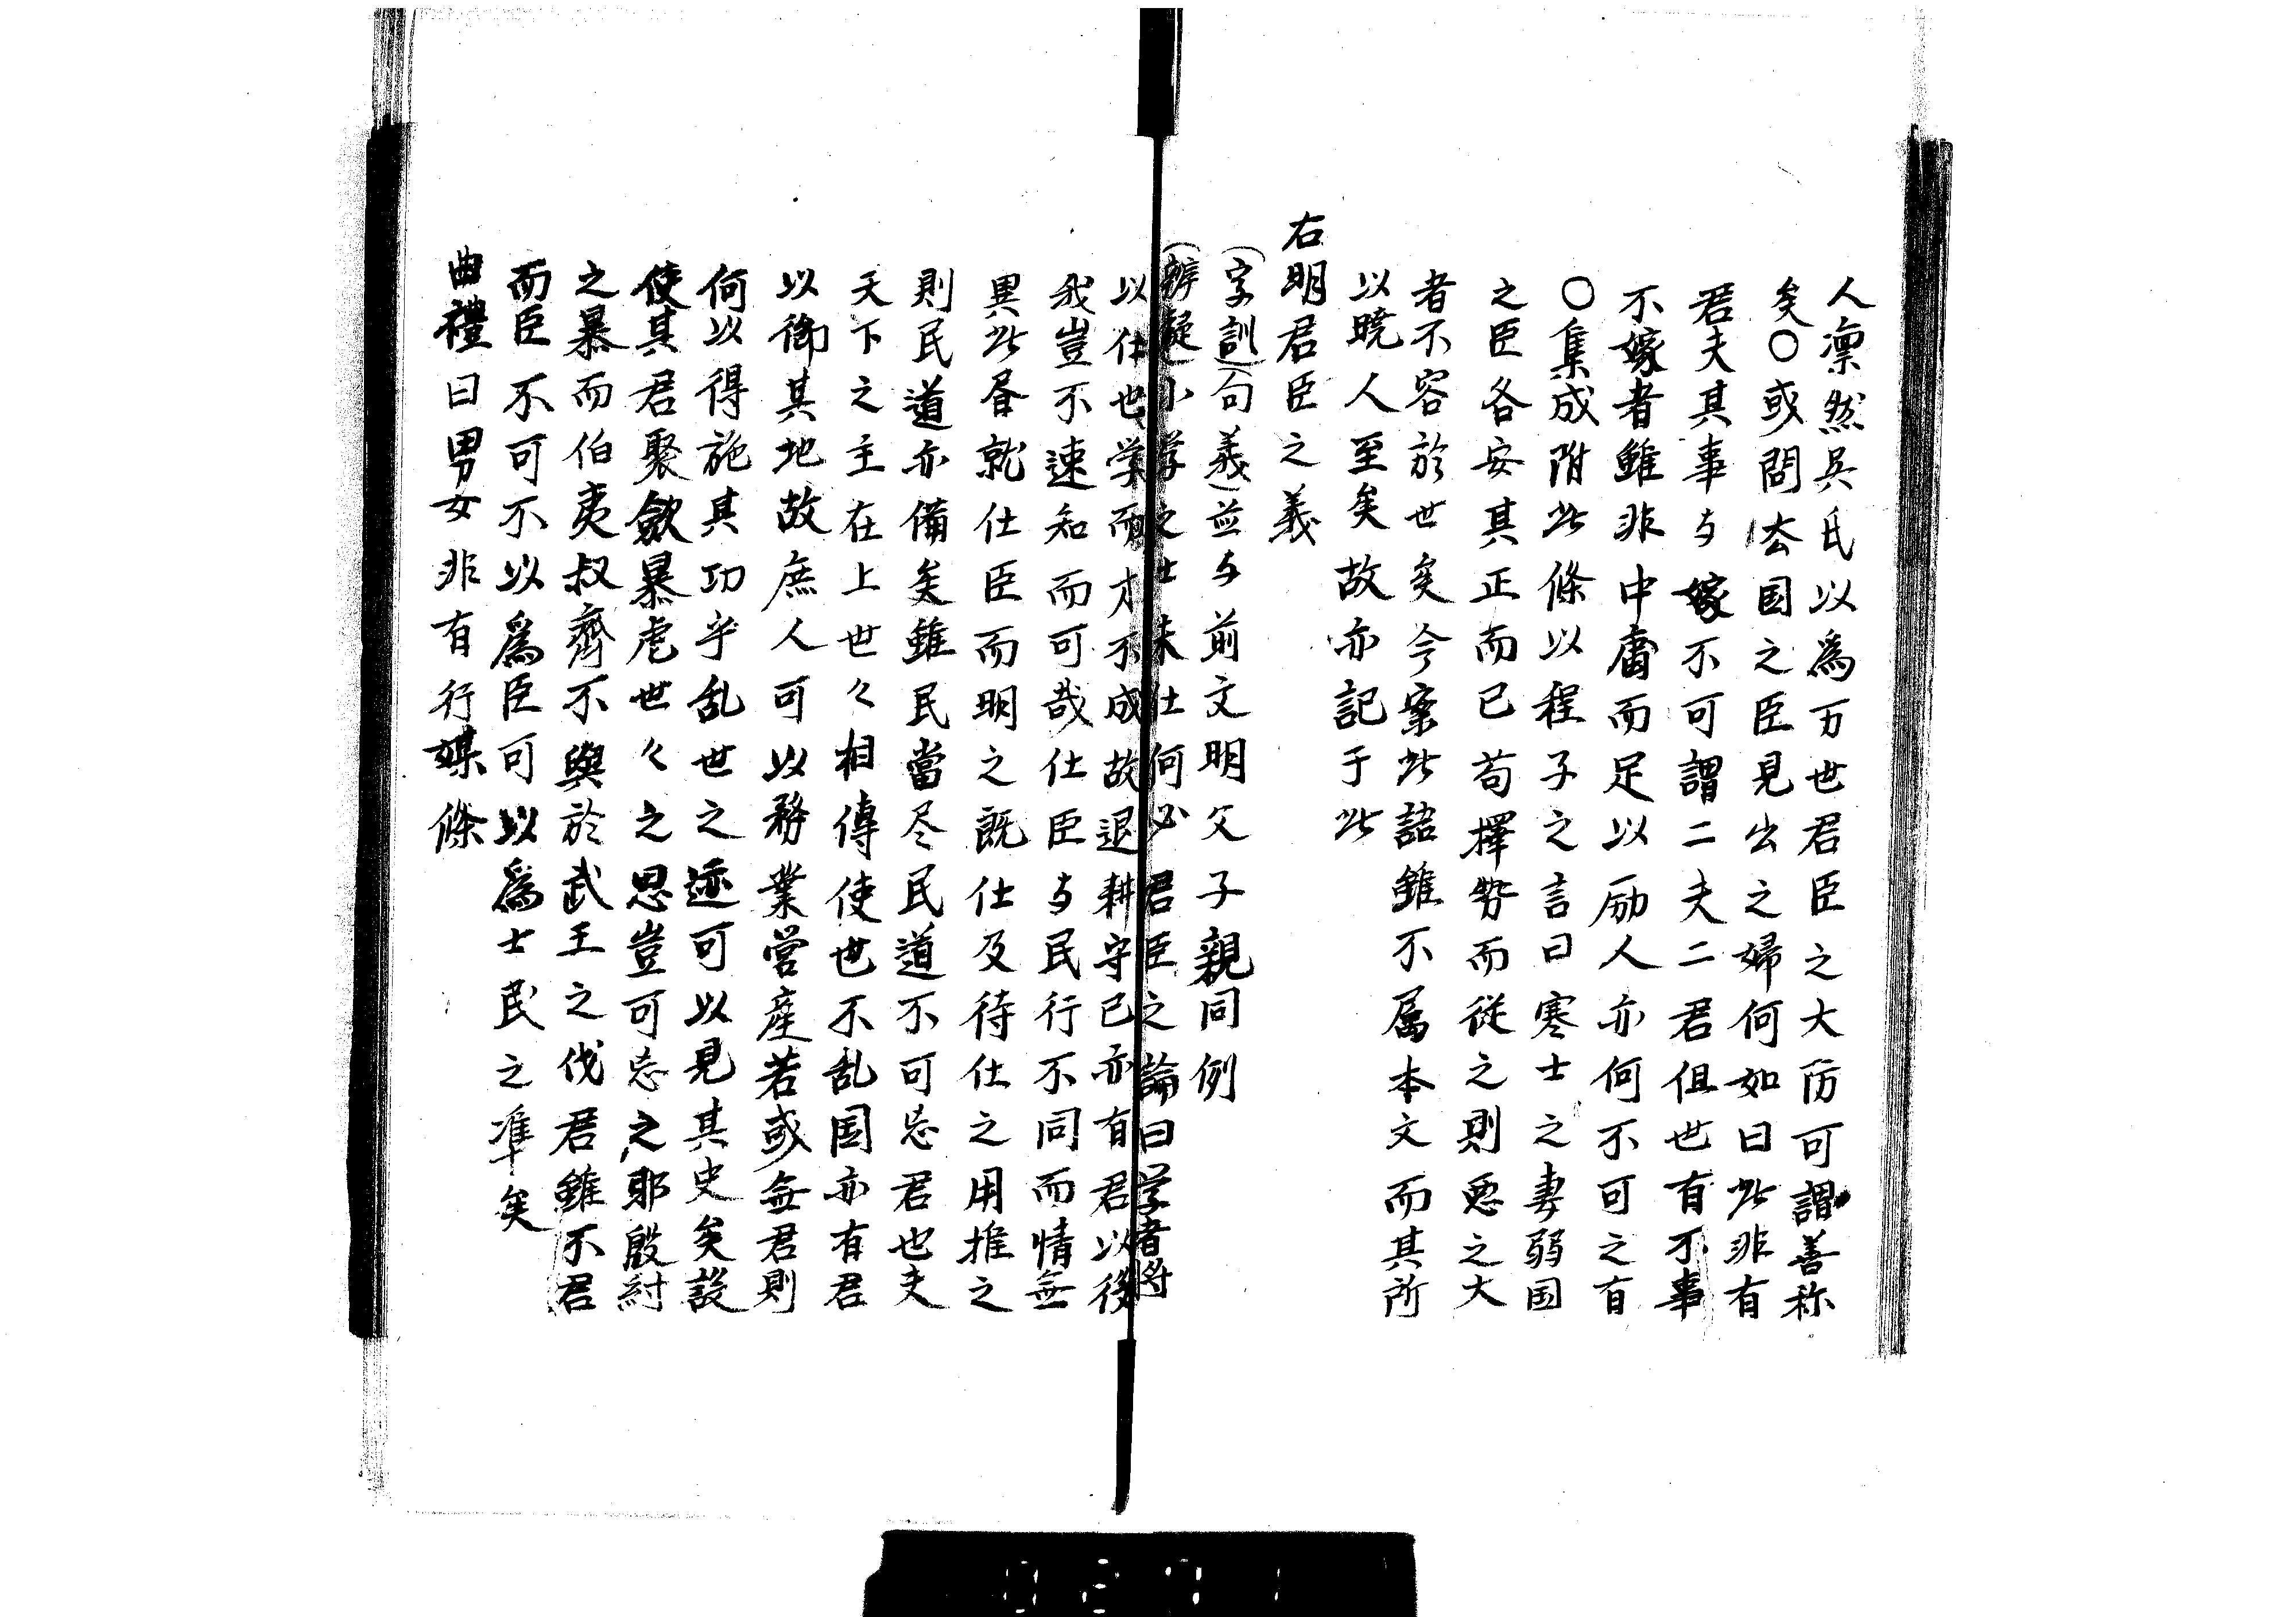 人凛然呉氏以為万世君臣之大防可謂善称
矣〇或問去国之臣見出之婦何如曰此非有
君夫其事与嫁不可謂二夫二君但世有不事
不嫁者雖非中庸而足以励人亦何不可之有
〇集成附此條以程子之言曰寒士之妻弱国
之臣各安其正而已苟擇勢而従之則悪之大
者不容於世矣今案此語雖不属本文而其所
以暁人至矣故亦記于此
右明君臣之義
(字訓)(句義)並与前文明父子親同例
(辨疑)小学之士未仕何必君臣之論曰学者将
以仕也学而才不成故退耕守己亦有君以後
我豈不速知而可哉仕臣与民行不同而情無
異此眉就仕臣而明之既仕及待仕之用推之
則民道亦備矣雖民當尽民道不可忘君也夫
天下之主在上世々相傳使世不乱国亦有君
以御其地故庶人可以務業営産若或無君則
何以得施其功乎乱世之迹可以見其史矣設
使其君聚斂暴虐世々之恩豈可忘之耶殷紂
之暴而伯夷叔齊不與於武王之伐君雖不君
而臣不可不以爲臣可以爲士民之準矣
曲禮曰男女非有行媒條